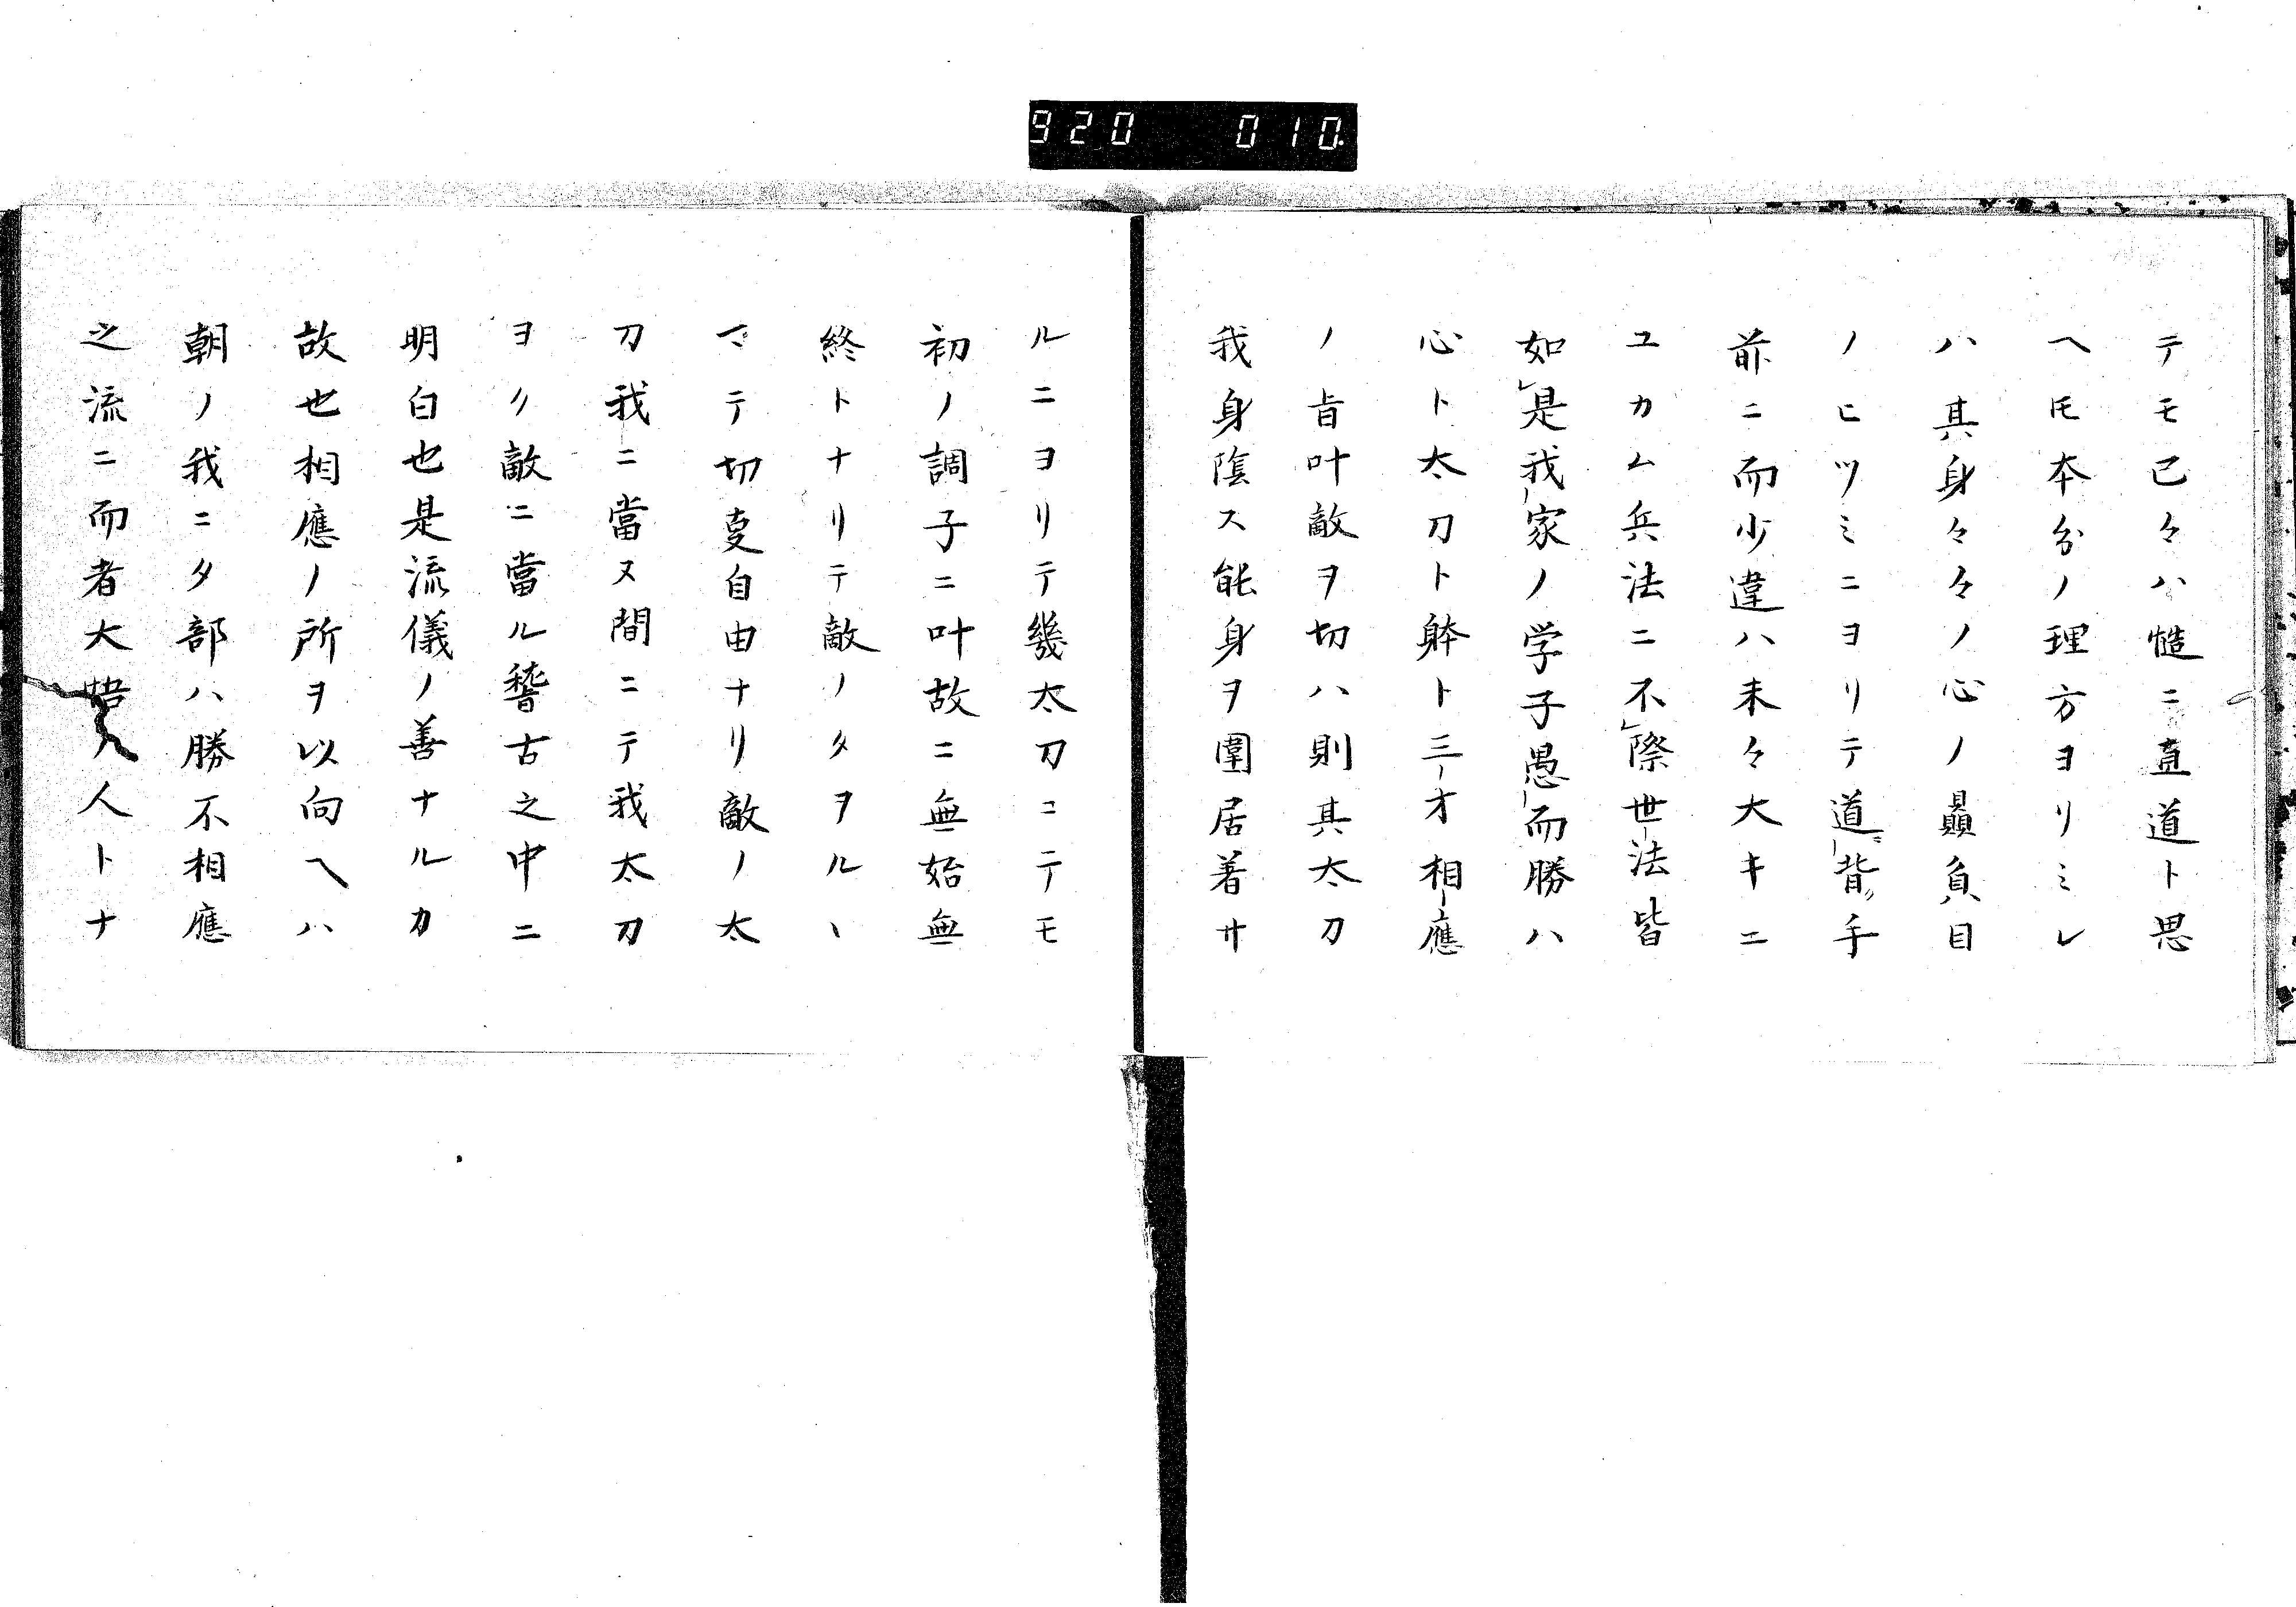 920 010.
テモ已々ハ慥ニ直道ト思
ヘ𪜈本分ノ理方ヨリミレ
ハ其身々々ノ心ノ贔負目
ノヒツミニヨリテ道ニ背ク手
前ニ而少違ハ末々大キニ
ユカム兵法ニ不レ際世法皆
如レ是我家ノ学子愚而勝ハ
心ト太刀ト躰ト三才相應
ノ旨叶敵ヲ切ハ則其太刀
我身陰ス能身ヲ圍居着サ
ルニヨリテ幾太刀ニテモ
初ノ調子ニ叶故ニ無始無
終トナリテ敵ノタヲルヽ
マテ切㕝自由ナリ敵ノ太
刀我ニ當ヌ間ニテ我太刀
ヨク敵ニ當ル稽古之中ニ
明白也是流儀ノ善ナルカ
故也相應ノ所ヲ以向ヘハ
朝ノ我ニタ部ハ勝不相應
之流ニ而者大悟ノ人トナ